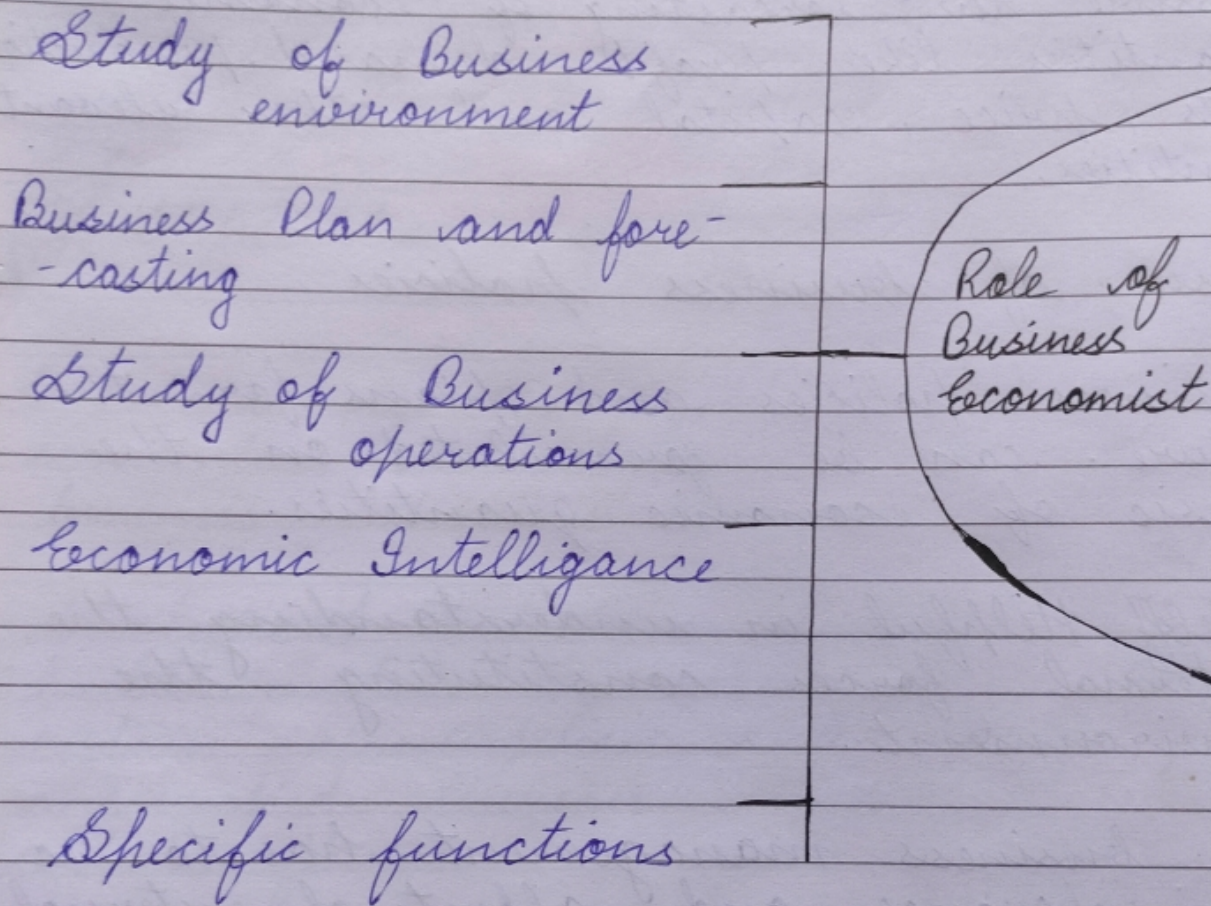 Study of Business
environment
Business Plan and fore-
-casting
Study of Business
operations
Economic Intelligance
Specific functions
Role of
Business
Economist